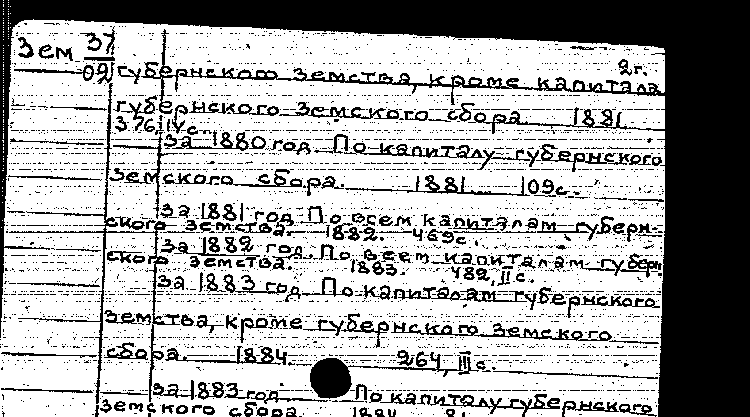 Зем 37/02 2г.
губернского земства, кроме капитала
губернского Земского сбора 1881
376, IV с.
за 1880 год. По капиталу губернского
Земского сбора. 1881 109с.
за 1881 год По всем капиталам губерн-
ского земства. 1882. 469с.
за 1882 год. По всем капиталам губерн
ского земства. 1883. 482, II с.
за 1883 год По капиталам губернского
Земства, кроме губернского Земского
сбора. 1884. 264, III с.
за 1883 год По капиталу губернского
Земского сбора. 1884